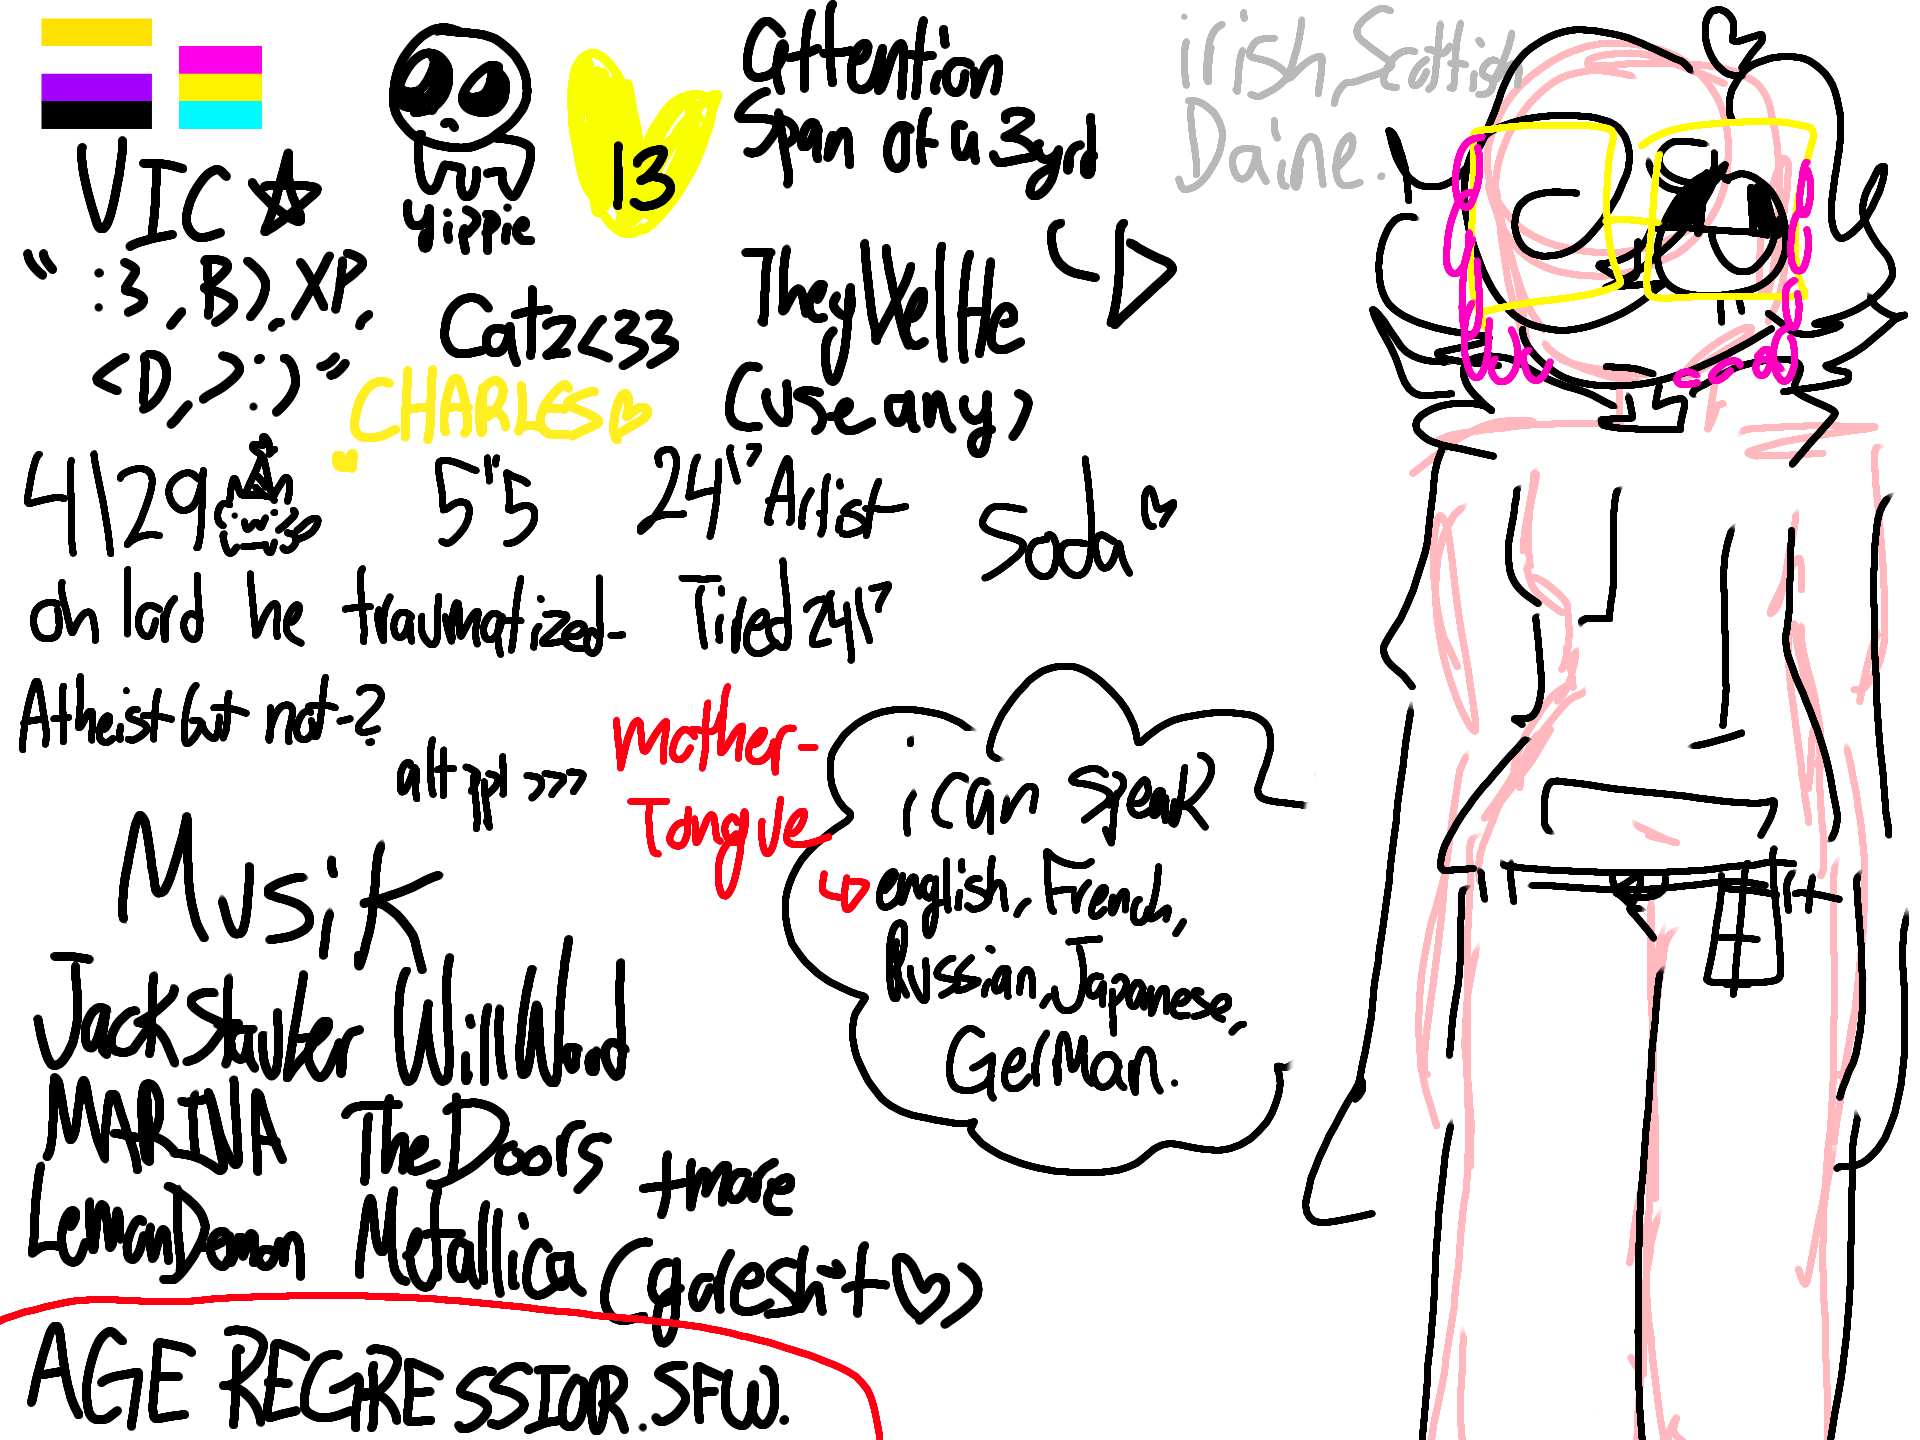 VIC
" :3, B), XP,
<D, >:) "
yippie
13
attention
Span of a 3yrd
irish, Scottish
Daine.
Catz<33
CHARLES
They/Xe/He
(use any)
4\29
5"5
24\7 Artist
Soda
oh lord he traumatized-
Tired 24\7
Atheist but not-?
alt ppl >>>
mother-
Tongue
i can speak
english, French,
Russian, Japanese,
GerMan.
Musik
Jack Stauber Will Wood
MARINA The Doors
LemonDemon Metallica
+more
(goresh*t ♡)
AGE REGRESSIOR. SFW.